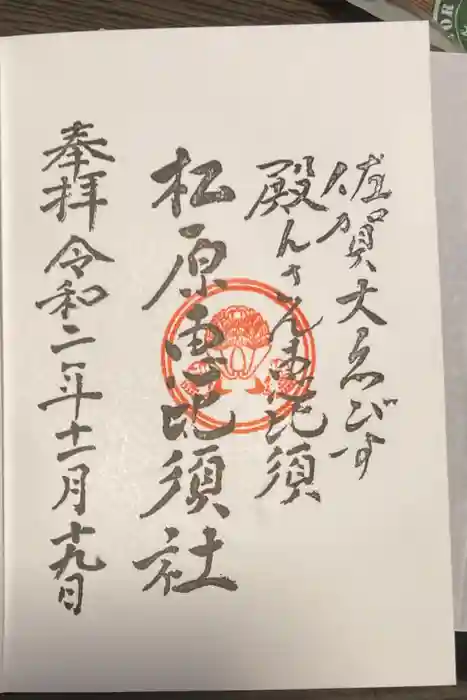 佐賀大ゑびす
殿んさんゑ恵比須
松原恵比須社
奉拝 令和二年十一月十九日